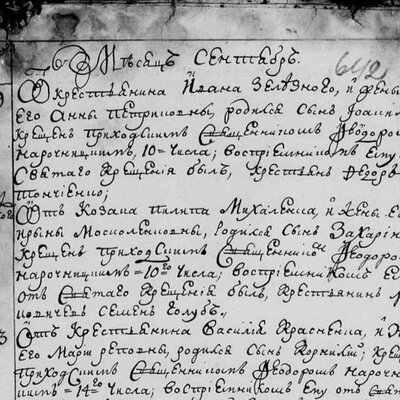 Мѣсяцъ Сентябръ.
642
О крестьянина Ивана Зелѣзного, и жены
Его Анны Петриковны, родился Сынъ
Крещенъ приходскимъ Священникомъ Ѳеодоро
нарочницкимъ, 10= числа; воспріемникомъ Ему
Святаго крещенія былъ, крестьянинъ Ѳедоръ
Отъ козака Пилипа Михаленка, и жены Е
родился Сынъ Захарія
крещенъ приходскимъ Священнико Ѳеодоро
нарочницкимъ =10го= числа; воспріемникомъ Е
отъ Святаго крещенія былъ, крестьянинъ
Семенъ Голубъ.
3
Отъ крестьянина Василія Красненка, и
Его Маріи родился Сынъ Корнилій; крещ
приходскимъ Священникомъ Ѳеодоромъ нарочн
=14го= числа; воспріемникомъ Ему отъ Свят